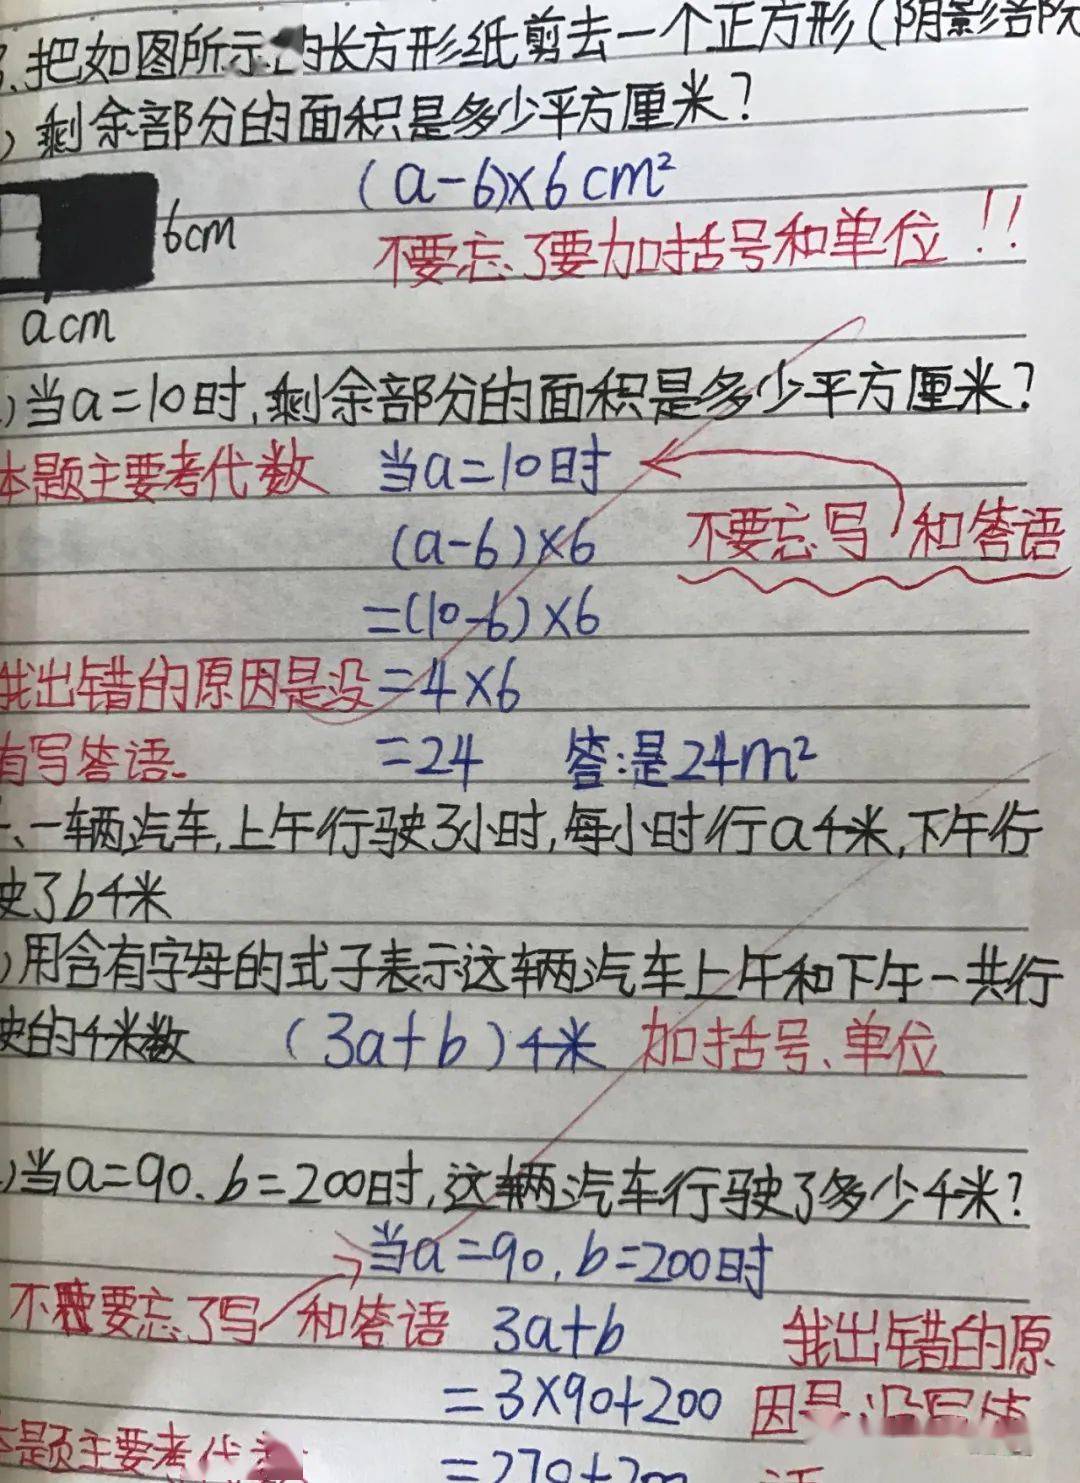 把如图所示的长方形纸剪去一个正方形(阴影部
)剩余部分的面积是多少平方厘米?
(a-6)×6cm²
6cm
不要忘了要加括号和单位!!
acm
)当a=10时,剩余部分的面积是多少平方厘米?
本题主要考代数 当a=10时
(a-6)×6
不要忘写 和答语
=(10-6)×6
我出错的原因是没 =4×6
有写答语. =24 答:是24m²
一辆汽车,上午行驶3小时,每小时行a千米,下午行
驶了b千米
)用含有字母的式子表示这辆汽车上午和下午一共行
驶的千米数 (3a+b)千米 加括号、单位
)当a=90、b=200时,这辆汽车行驶了多少千米?
当a=90,b=200时
要忘了写 和答语 3a+b 我出错的原
=3×90+200 因是没写答
本题主要考代
=270+200 语